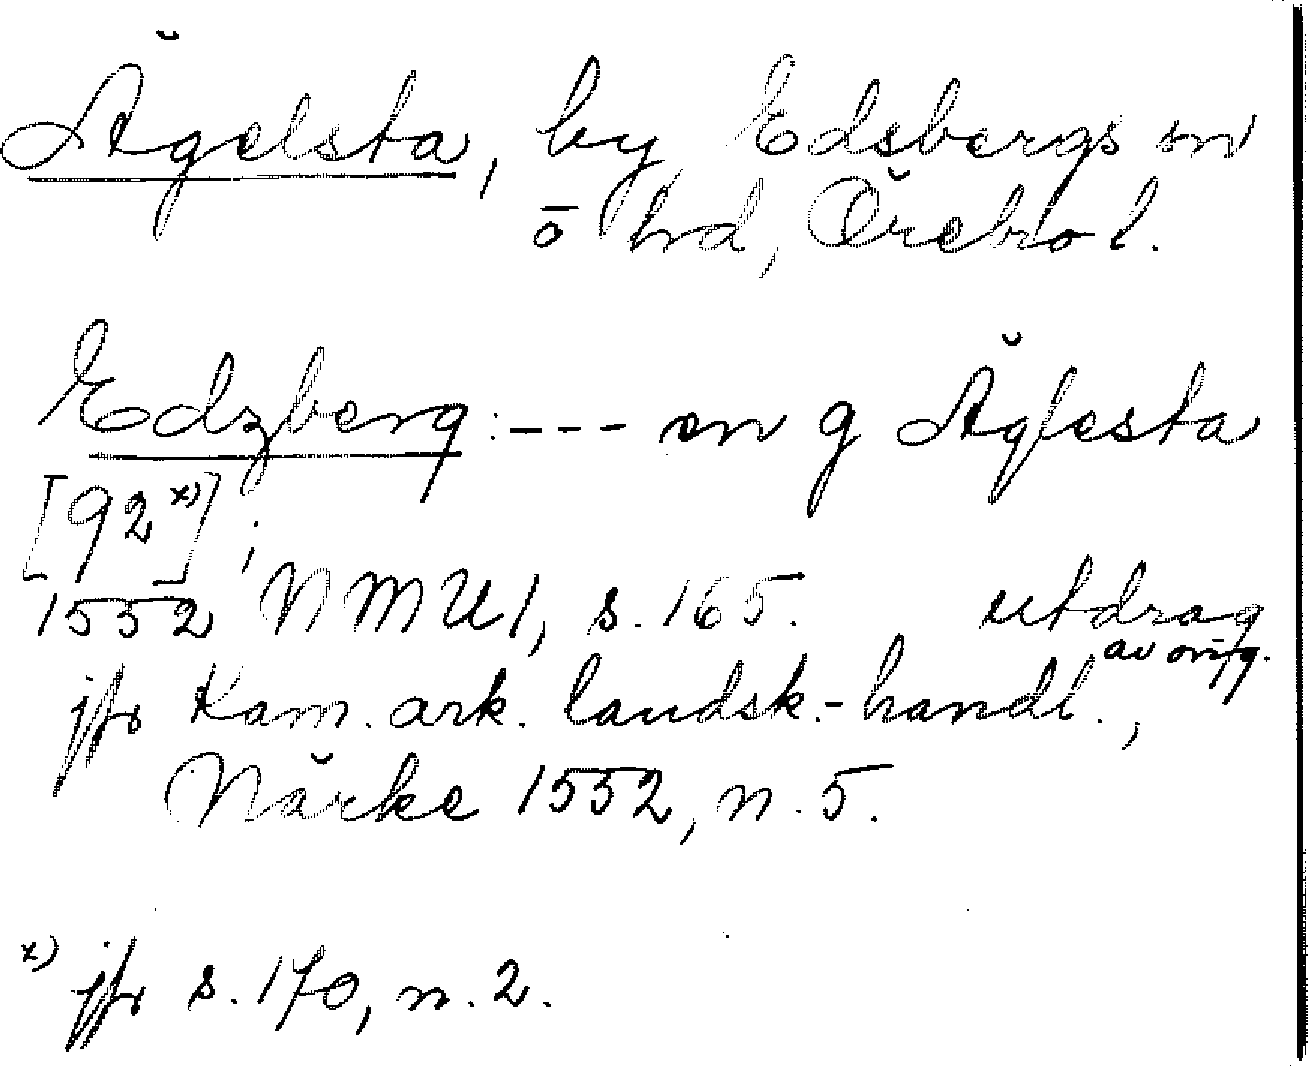 Ägelsta, by Edsbergs sn
o hd, Örebro l.
Edzberg: --- en g Äglesta
[92x)];
1552 NMU 1, s. 165. utdrag
av orig.
jfr Kam. ark. landsk.-handl.,
Närke 1552, n. 5.
x) jfr s. 170, n. 2.